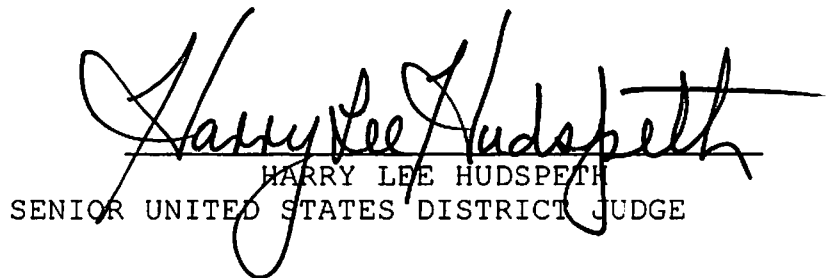 Harry Lee Hudspeth
HARRY LEE HUDSPETH
SENIOR UNITED STATES DISTRICT JUDGE